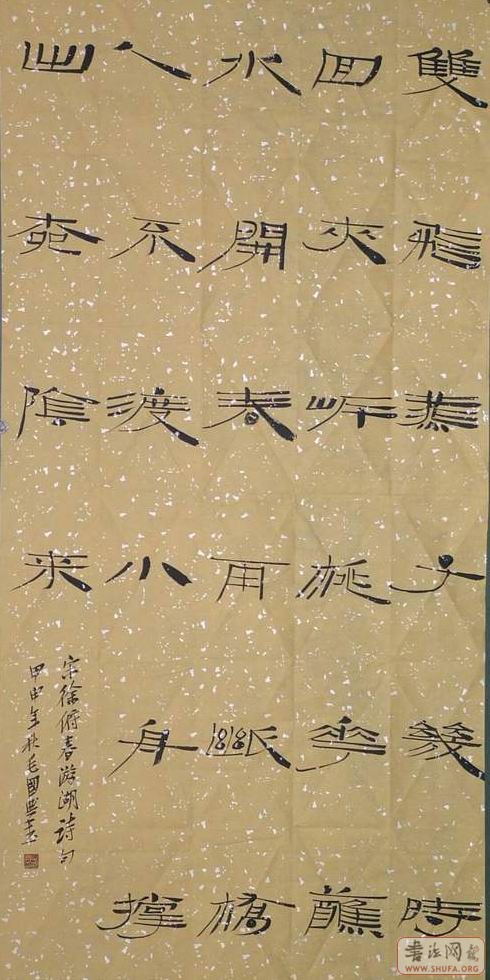 雙飛燕子幾時
回夾岸桃花蘸
水開春雨斷橋
人不渡小舟撐
出柳陰來
宋徐俯春游湖詩句
甲申年秋毛國典書
书法网
WWW.SHUFA.ORG